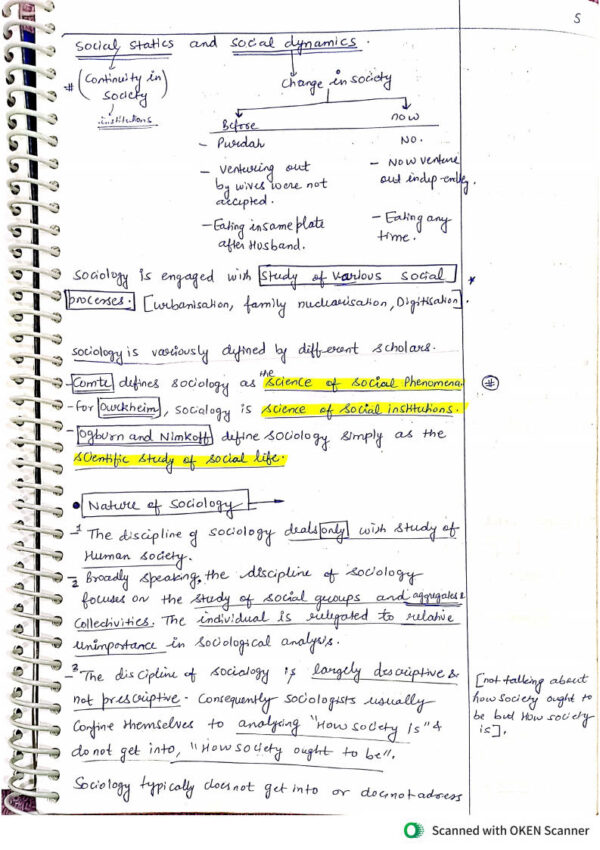 5
Social statics and social dynamics.
# (Continuity in society)
institutions
Change in society
Before
now
- Purdah
NO.
- Venturing out by wives were not accepted.
- Now venture out indep-ently.
- Eating in same plate after Husband.
- Eating any time.
Sociology is engaged with study of various social *
processes. [urbanisation, family nuclearisation, Digitisation].
Sociology is variously defined by different scholars.
- Comte defines sociology as the science of social Phenomena. #
- for Durkheim, sociology is science of social institutions.
- Ogburn and Nimkoff define sociology simply as the
scientific study of social life.
• Nature of Sociology →
1 The discipline of sociology deals only with study of
Human society.
2 Broadly speaking, the discipline of sociology
focuses on the study of social groups and aggregates &
Collectivities. The individual is relegated to relative
unimportance in sociological analysis.
3 The discipline of sociology is largely descriptive &
not prescriptive. Consequently sociologists usually
Confine themselves to analysing "How society Is" &
do not get into, "How society ought to be".
[not talking about
how society ought to
be but How society
is].
Sociology typically does not get into or does not adress
Scanned with OKEN Scanner